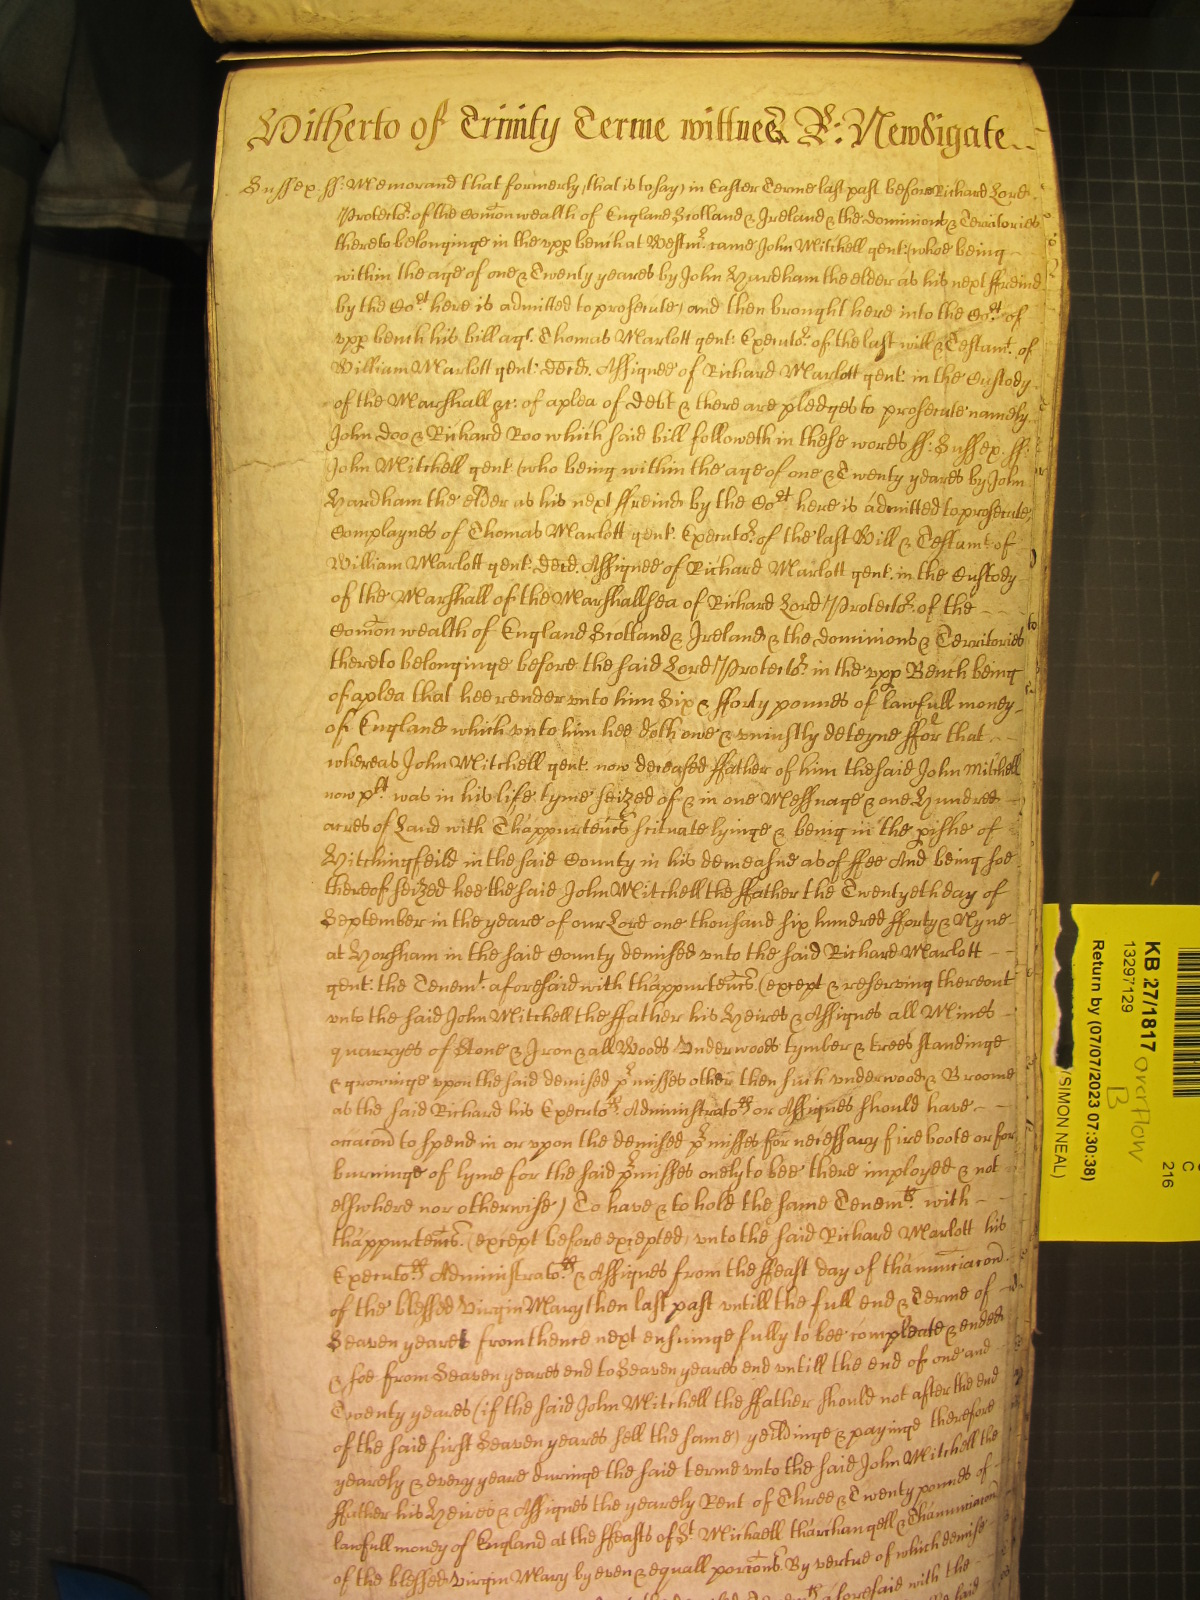 Hitherto of Trinity Terme wittnes R: Newdigate
Sussex ss: Memorand that formerly (that is to say) in Easter Terme last past before Richard Lord
Protector of the Com̄on wealth of England Scotland & Ireland & the dominions & Territories
thereto belonginge in the upp bench at Westmr came John Mitchell gent: (whoe being
within the age of one & Twenty yeares by John Yardham the elder as his next ffreind
by the Cort here is admitted to prosecute) and then brought here into the Cort of
upp bench his bill agt Thomas Marlott gent: Executor of the last will & Testamt of
William Marlott gent: decd. Assignee of Richard Marlott gent: in the Custody
of the Marshall &c: of a plea of debt & there are pledges to prosecute namely
John Doo & Richard Roo which said bill followeth in these words ss: Sussex ss:
John Mitchell gent (who being within the age of one & Twenty yeares by John
Yardham the elder as his next ffreind by the Cort here is admitted to prosecute)
Complaynes of Thomas Marlott gent: Executor of the last Will & Testamt of
William Marlott gent: decd. Assignee of Richard Marlott gent: in the Custody
of the Marshall of the Marshallsea of Richard Lord Protector of the
Com̄on wealth of England Scotland & Ireland & the dominions & Territories
thereto belonginge before the said Lord Protector in the upp Bench being
of a plea that hee render unto him Six & fforty pounds of lawfull money
of England which unto him hee doth owe & uniustly deteyne ffor that
whereas John Mitchell gent: now deceased ffather of him the said John Mitchell
now plt was in his life tyme seized of & in one Messuage & one Hundred
acres of Land with Thappurtencs scituate lyinge & being in the pishe of
Hitchingfeild in the said County in his demeasne as of ffee And being soe
thereof seized hee the said John Mitchell the ffather the Twentyeth day of
September in the yeare of our Lord one thousand six hundred fforty & Nyne
at Horsham in the said County demised unto the said Richard Marlott
gent: the Tenemt aforesaid with thappurtencs (except & reserving thereout
unto the said John Mitchell the ffather his Heires & Assignes all Mines
quarryes of Stone & Iron & all Woods Underwoods tymber & trees standinge
& growinge upon the said demised pmisses other then such underwood & Broome
as the said Richard his Executors Administrators or Assignes should have
occacon to spend in or upon the demised pmisses for necessary fire boote or for
burninge of lyme for the said pmisses onely to bee there imployed & not
elswhere nor otherwise) To have & to hold the same Tenemts with
thappurtencs (except before excepted) unto the said Richard Marlott his
Executors Administrators & Assignes from the ffeast day of thannunciacon
of the blessed Virgin Mary then last past untill the full end & Terme of
Seaven yeares from thence next ensuinge fully to bee compleate & ended
& soe from Seaven yeares end to Seaven yeares end untill the end of one and
Twenty yeares (if the said John Mitchell the ffather should not after the end
of the said first Seaven yeares sell the same) yeildinge & payinge therefore
yearely & every yeare duringe the said terme unto the said John Mitchell the
ffather his Heires & Assignes the yearely Rent of Three & Twenty pounds of
lawfull money of England at the ffeasts of St Michaell tharchangell & Thannunciacon
of the blessed Virgin Mary by even & equall porcons By vertue of which demise
aforesaid with the
KB 27/1817 overflow
B
13297129
Return by (07/07/2023 07:30:38)
(SIMON NEAL)
C
216